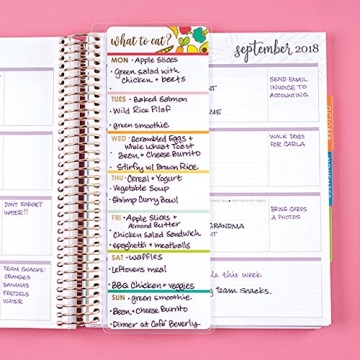 what to eat?
MON • Apple Slices
• Green salad with
chicken + beets
TUES • Baked Salmon
Wild Rice Pilaf
• green smoothie
WED • Scrambled Eggs +
Whole Wheat Toast
Bean + Cheese Burrito
• Stirfry w/ Brown Rice
THU • Cereal + Yogurt
Vegetable Soup
• Shrimp Curry Bowl
FRI • Apple Slices +
Almond Butter
Chicken Salad Sandwich
• spaghetti + meatballs
SAT • Waffles
Leftovers meal
• BBQ Chicken + veggies
SUN • green smoothie
Bean + Cheese Burrito
• Dinner at Café Beverly
september 2018
SEND EMAIL
INVOICE TO
ACCOUNTING
WALK DOGS
FOR CARLA
BRING CARDS
& PHOTOS
GRANDMA
this week
team snacks.
DON'T FORGET
WATER!!
TEAM SNACKS:
ORANGES
BANANAS
PRETZELS
WATER